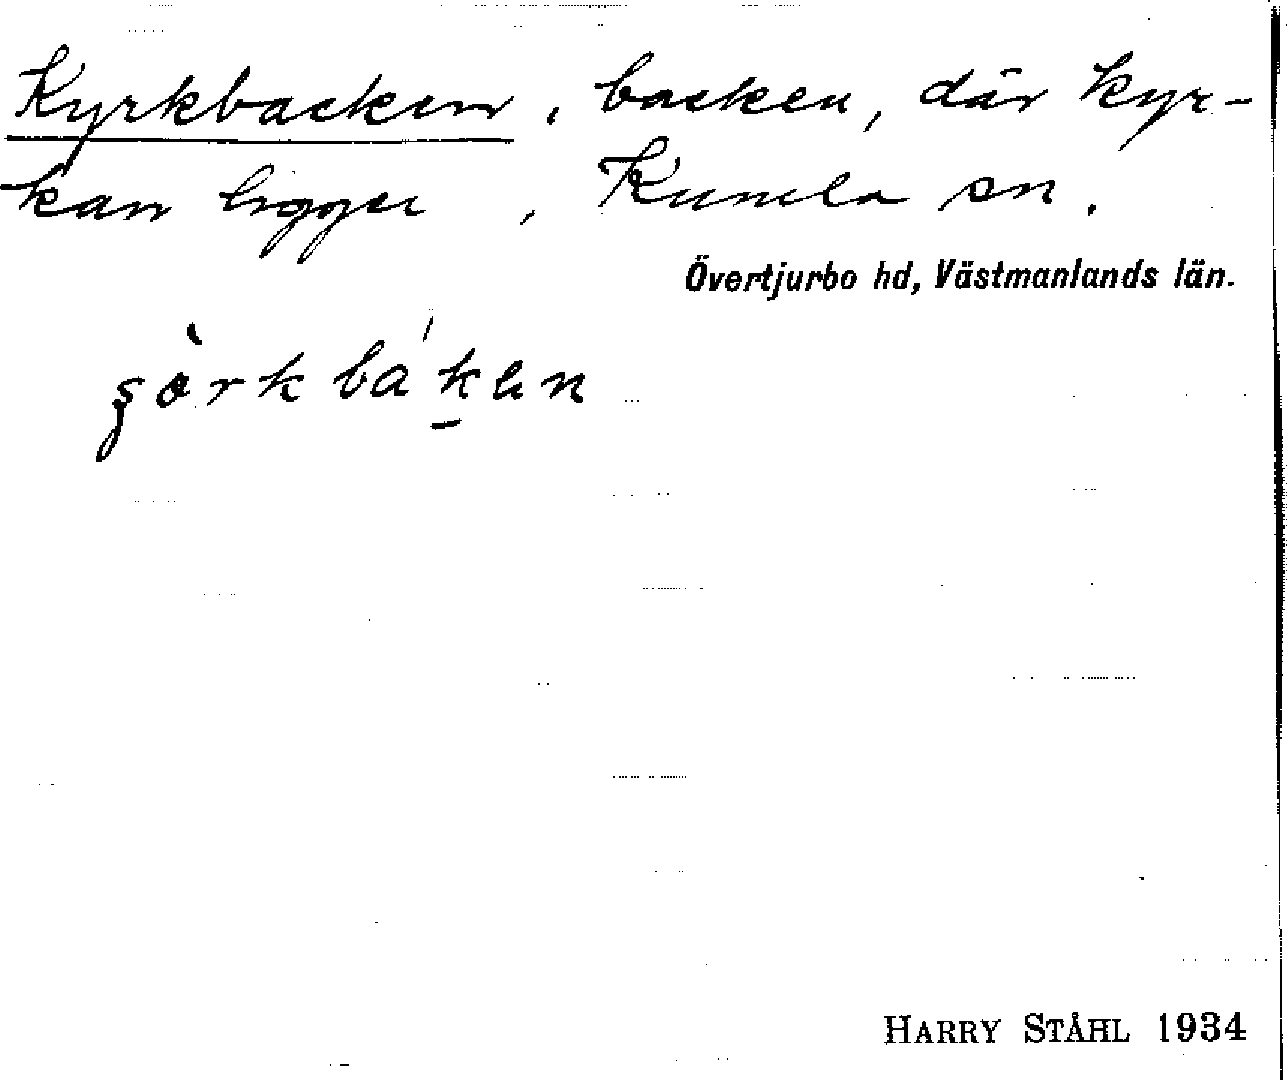 Kyrkbacken, backen, där kyr-
kan ligger, Kumla sn.
Övertjurbo hd, Västmanlands län.
HARRY STÅHL 1934